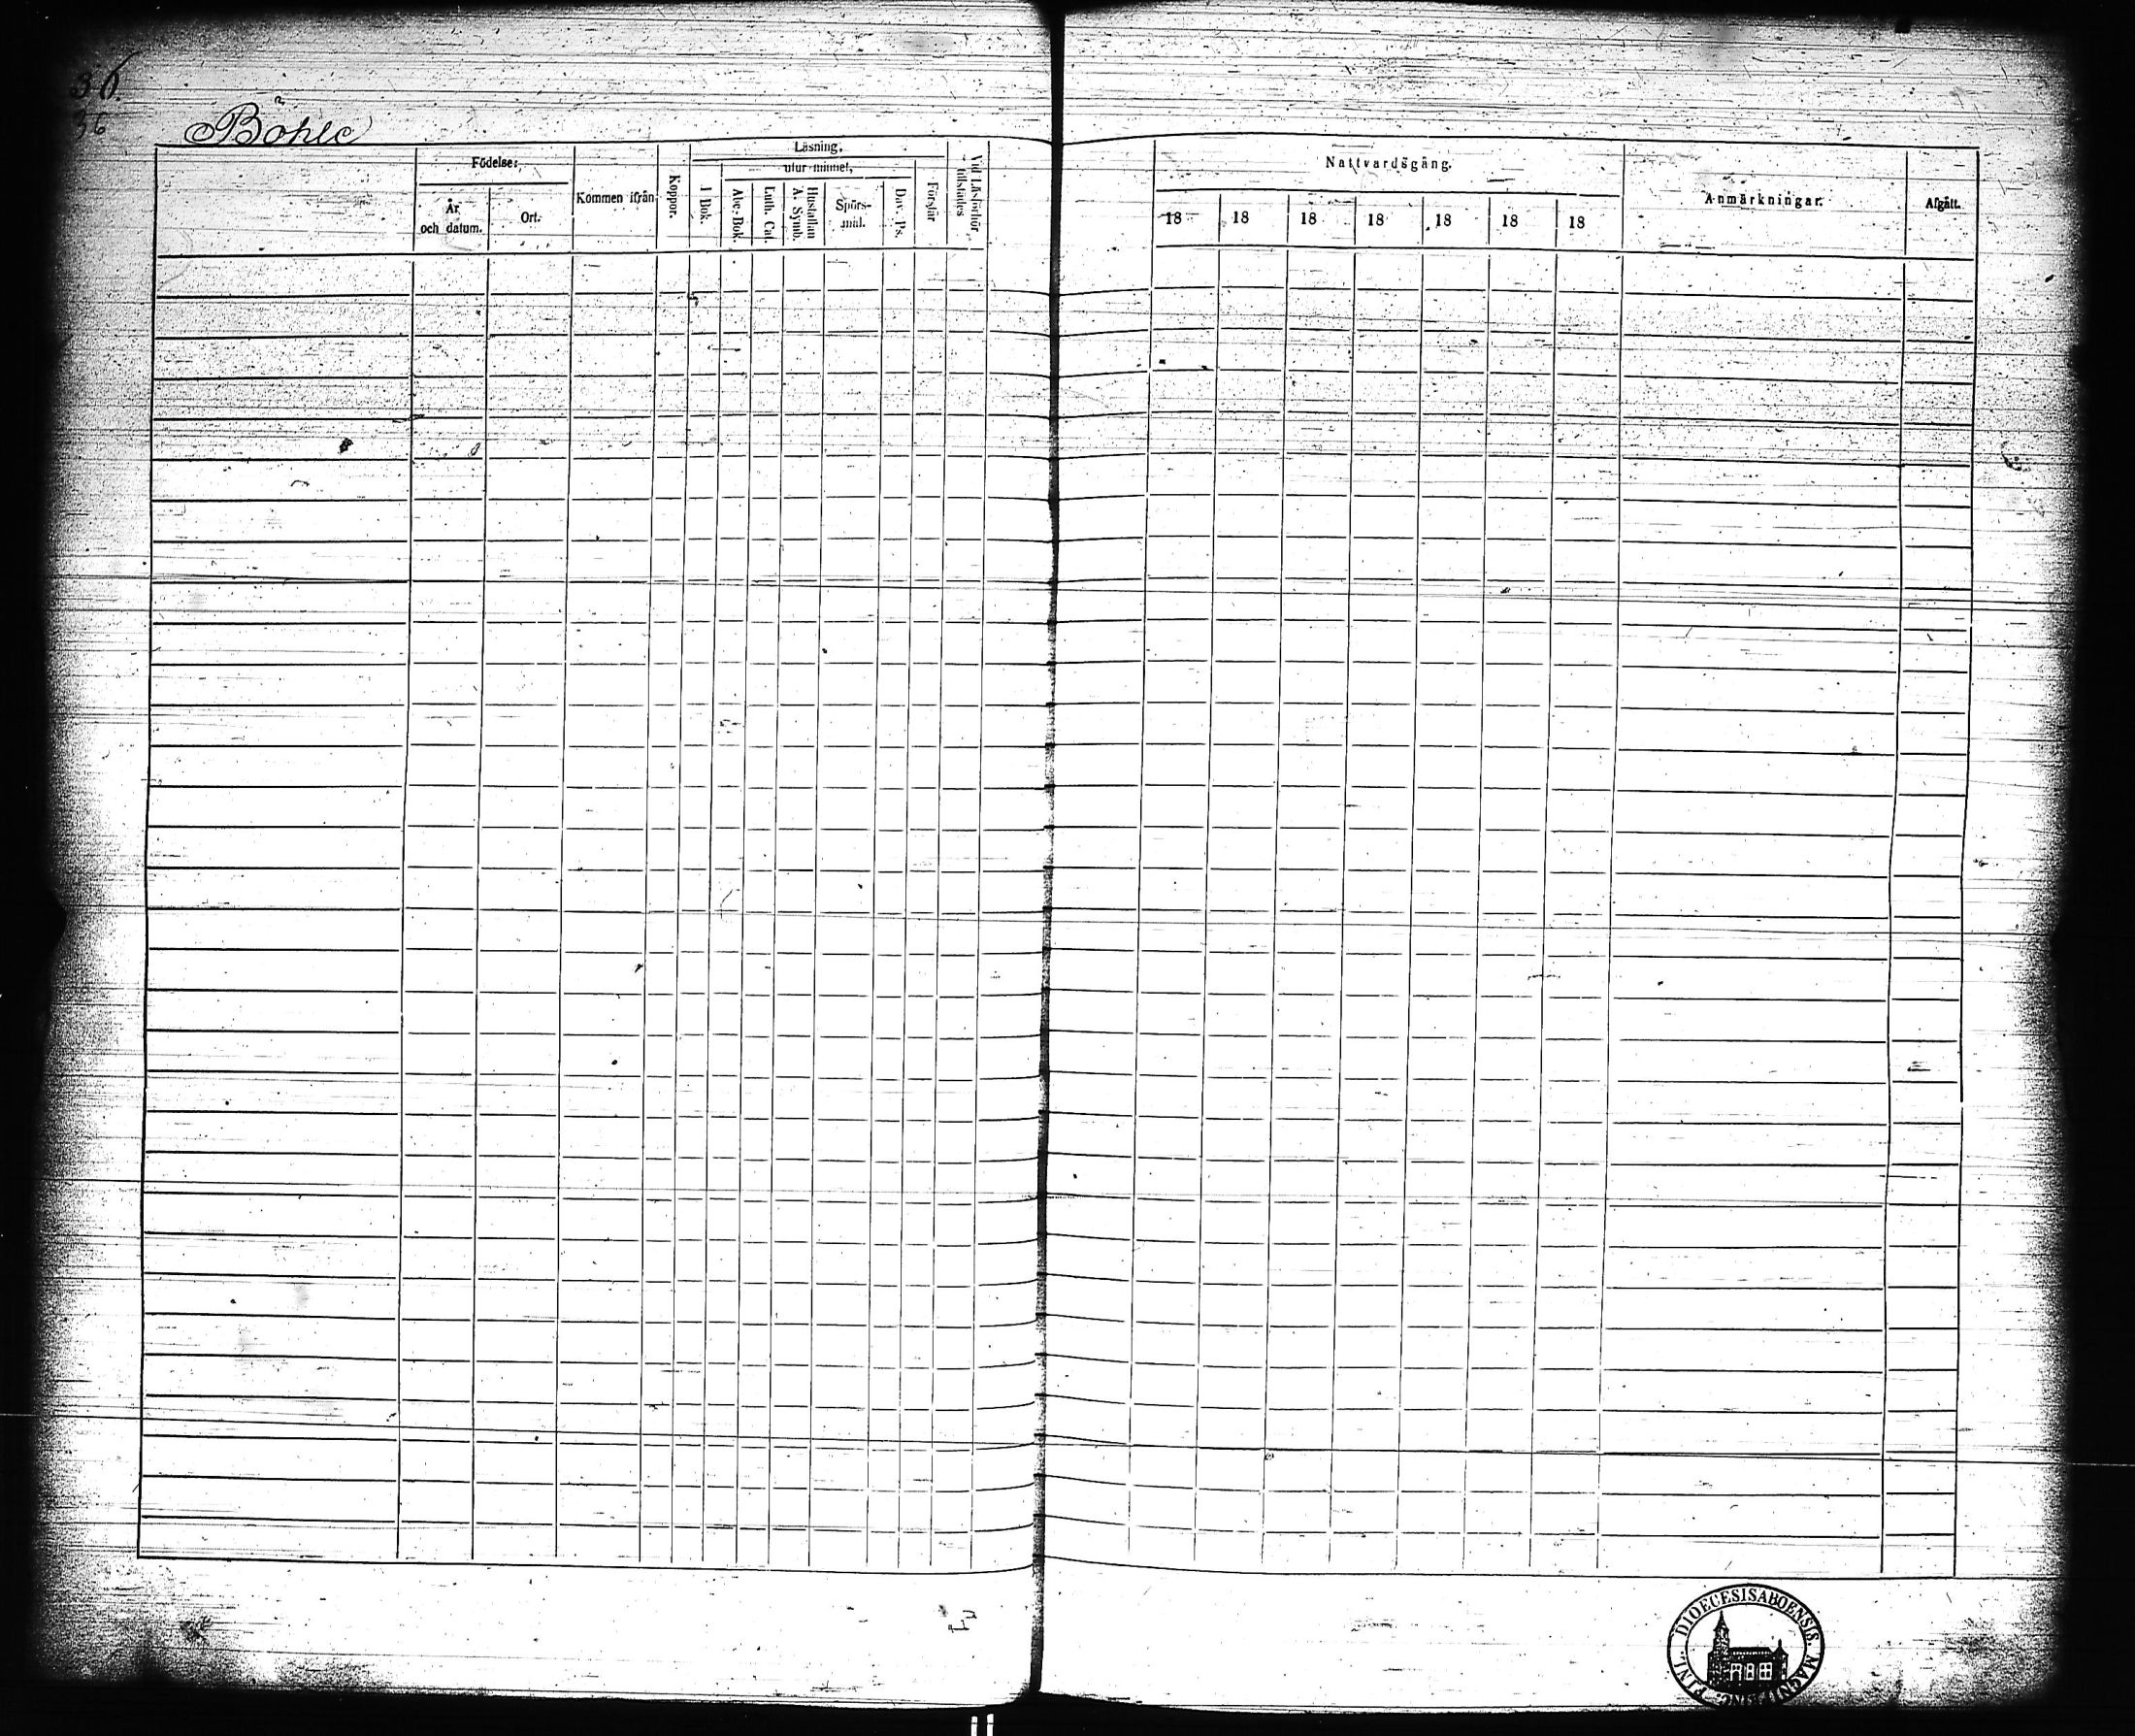 36.
36
Böhle
Födelse:
År och datum.
Ort.
Kommen ifrån
Koppor.
Läsning.
I Bok.
utur minnet,
Abc-Bok.
Luth. Cat.
Hustaflan A. Symb.
Spörs-mål.
Dav. Ps.
Förstår
Vid Läsförhör tillstädes
Nattvardsgång.
18 18 18 18 18 18 18
Anmärkningar.
Afgått.
DIOECESIS ABOENSIS.